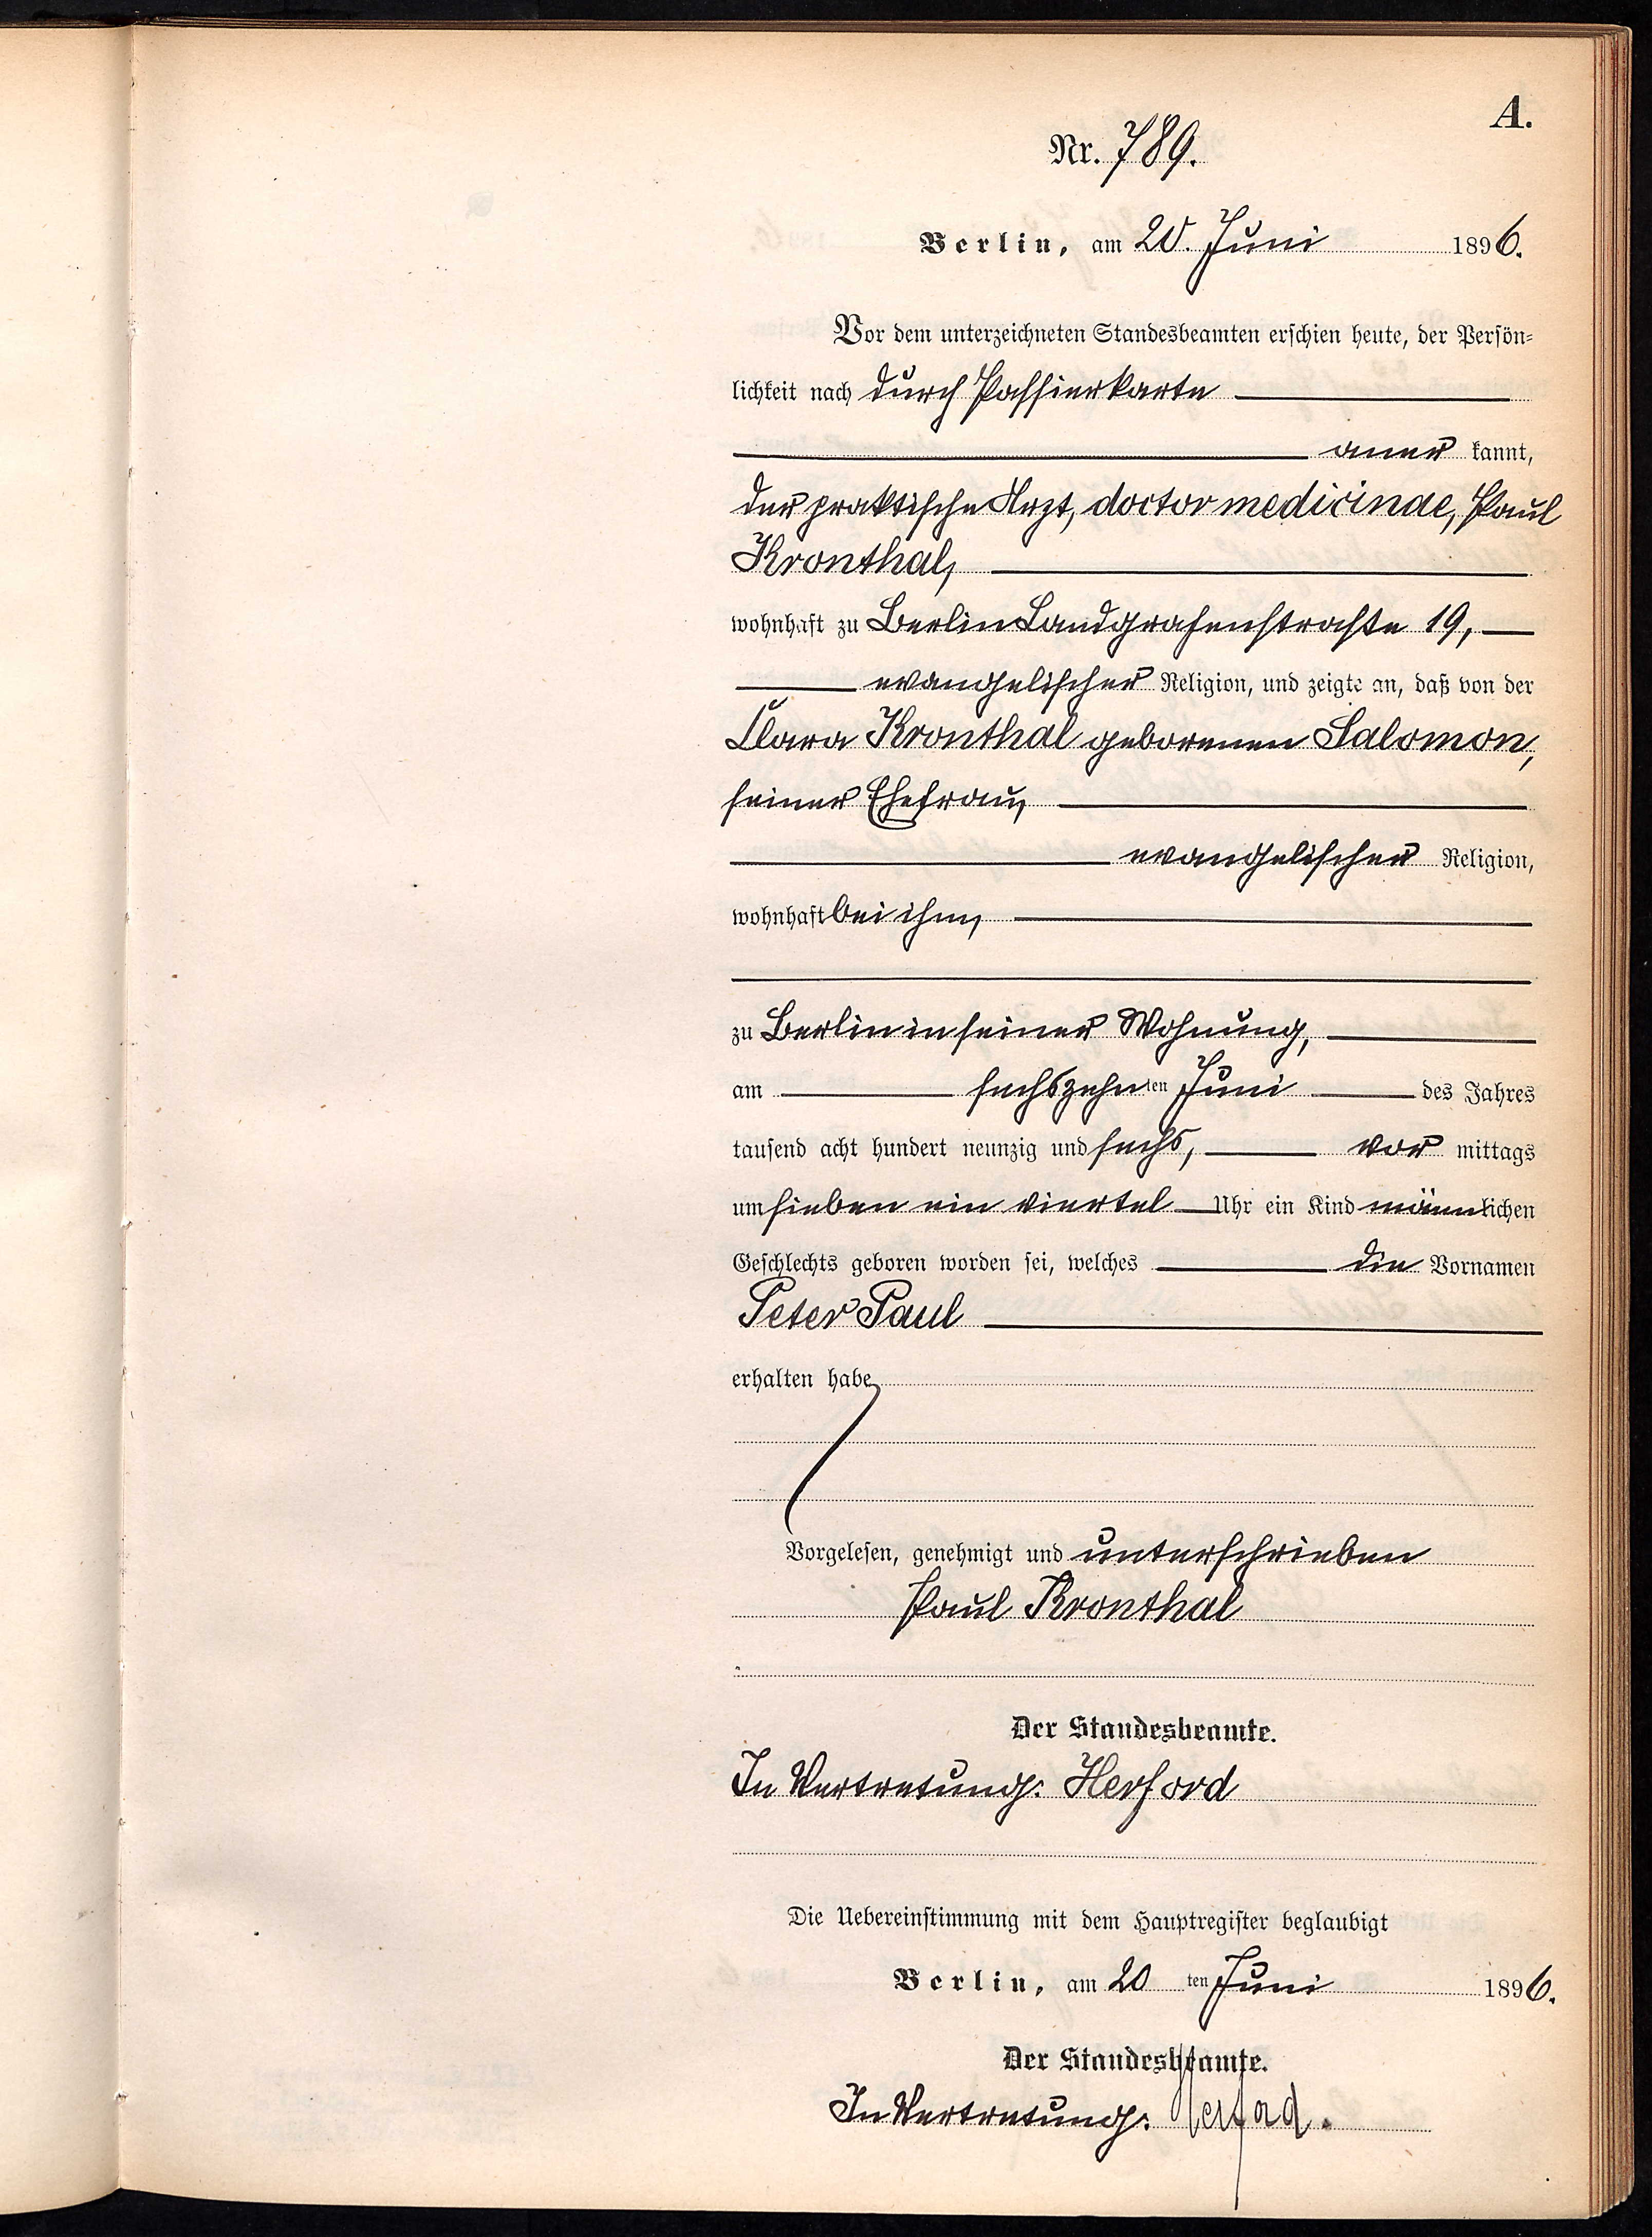 A.
Nr. 789.
Berlin, am 20. Juni 1896.
Vor dem unterzeichneten Standesbeamten erschien heute, der Persön-
lichkeit nach durch Passierkarte
aner kannt,
der praktische Arzt, doctor medicinae, Paul
Kronthal,
wohnhaft zu Berlin Landgrafenstraße 19,
evangelischer Religion, und zeigte an, daß von der
Clara Kronthal geborenen Salomon,
seiner Ehefrau,
evangelischer Religion,
wohnhaft bei ihm,
zu Berlin in seiner Wohnung,
am sechszehnten Juni des Jahres
tausend acht hundert neunzig und sechs, vor mittags
um sieben ein viertel Uhr ein Kind männlichen
Geschlechts geboren worden sei, welches die Vornamen
Peter Paul
erhalten habe
Vorgelesen, genehmigt und unterschrieben
Paul Kronthal
Der Standesbeamte.
In Vertretung: Herford
Die Uebereinstimmung mit dem Hauptregister beglaubigt
Berlin, am 20 ten Juni 1896.
Der Standesbeamte.
In Vertretung: Herford.